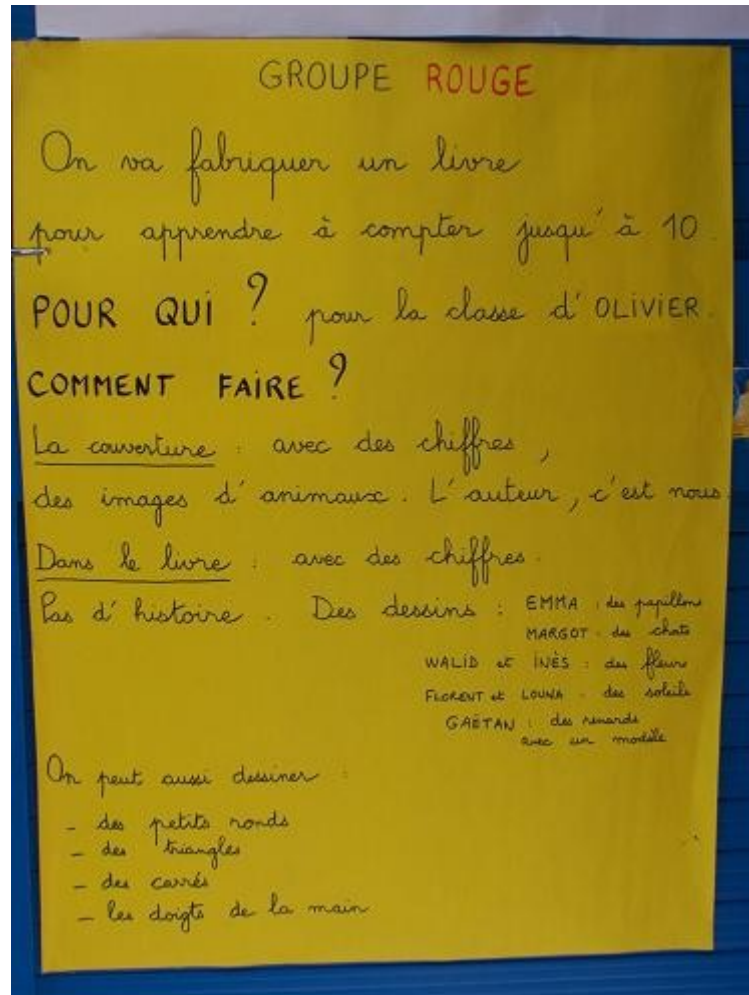 GROUPE ROUGE
On va fabriquer un livre
pour apprendre à compter jusqu'à 10.
POUR QUI ? pour la classe d'OLIVIER.
COMMENT FAIRE ?
La couverture : avec des chiffres,
des images d'animaux. L'auteur, c'est nous
Dans le livre : avec des chiffres.
Pas d'histoire. Des dessins : EMMA : des papillons
MARGOT : des chats
WALID et INÈS : des fleurs
FLORENT et LOUNA : des soleils
GAËTAN : des renards
avec un modèle
On peut aussi dessiner :
- des petits ronds
- des triangles
- des carrés
- les doigts de la main